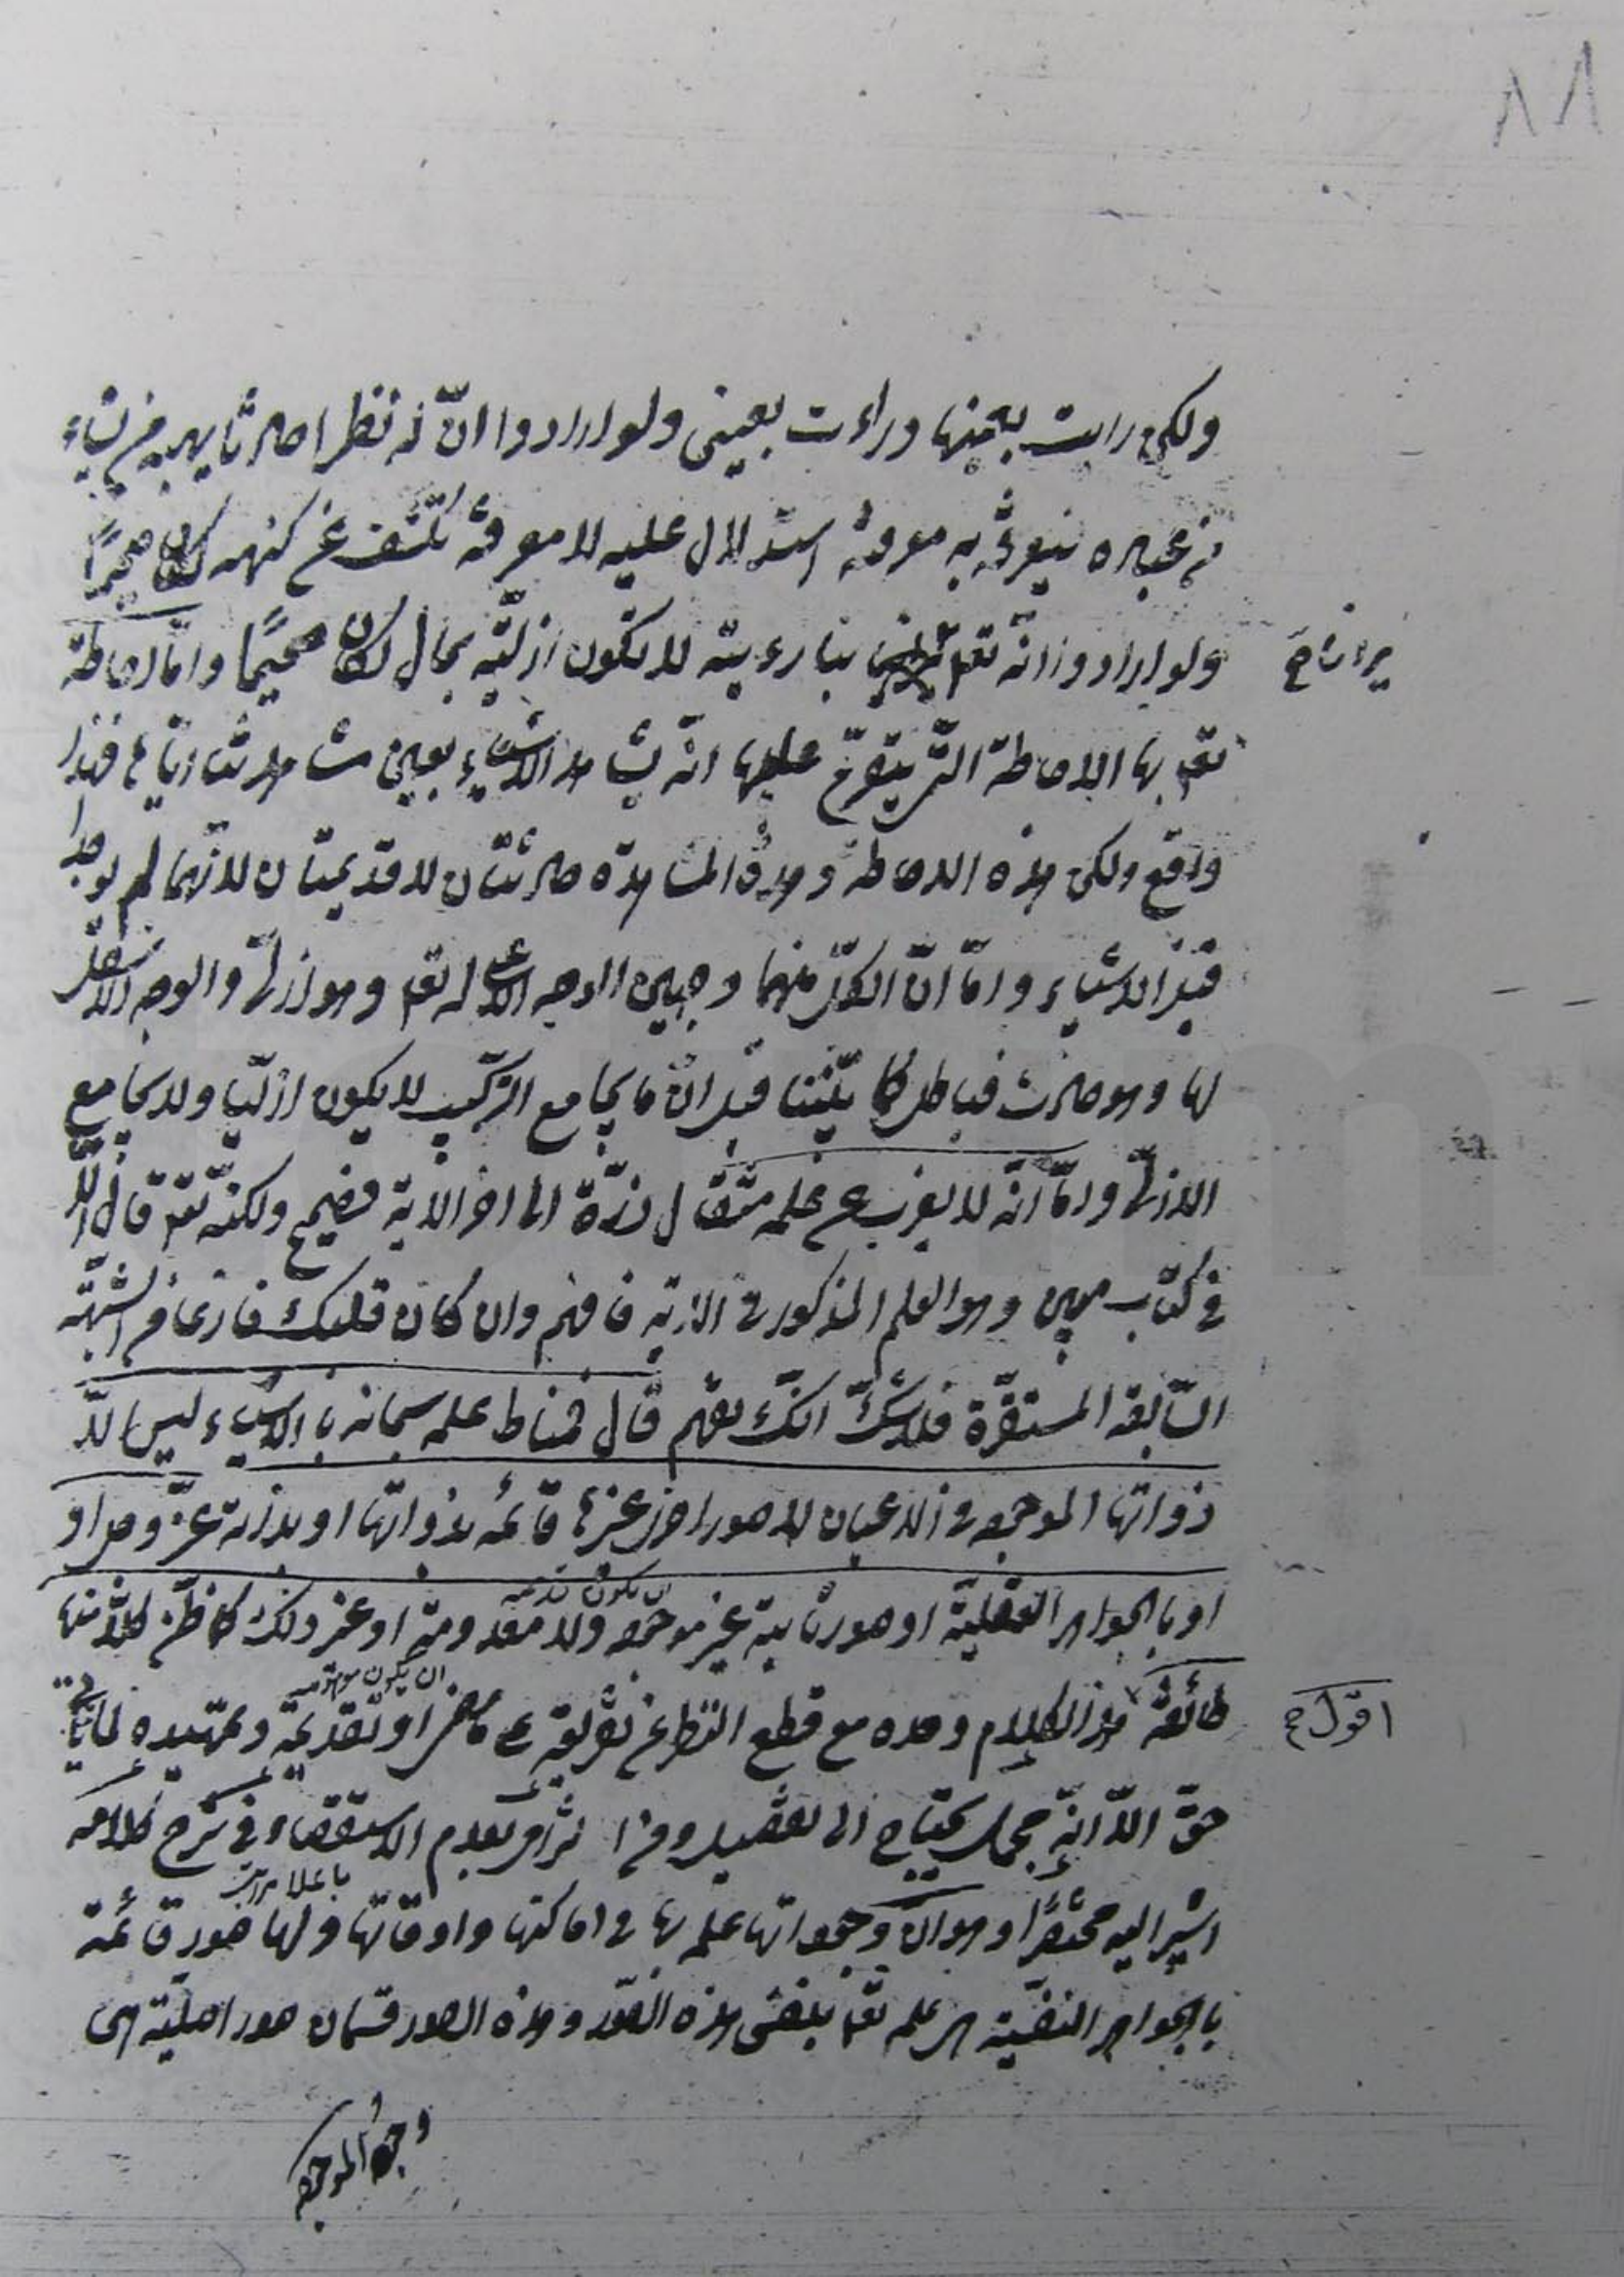 ٨٨
ولكن رات بعينها وراءت بعيني ولو ارادوا انّ له نظرا حادثا يهبه من يشاء
من عباده فيعرفه به معرفة استدلال عليه لا معرفة تكشف عن كنهه لكان صحيحًا
ولو ارادوا انه تعم يرانا بنا رءية لا تكون ازليّة بحال لكان صحيحًا وامّا احاطة
يرانا ح
تعم بها الاحاطة التى يتفرّع عليها انّه يشاهد الاشياء بعين مشاهدتنا اياه فهذا
واقع ولكن هذه الاحاطة وهذه المشاهدة حادثتان لا قديمتان لانّهما لم يوجدا
قبل الاشياء وامّا انّ الكلّ منهما وجهين الوجه الاعلى له تعم وهو ازلىّ والوجه الاسفل
لها وهو حادث فباطل كما بيّنّا قبل انّ ما يجامع التركيب لا يكون ازليّا ولا يجامع
الازلىّ وامّا انّه لا يعزب عن علمه مثقال ذرّة الى اخر الاية فصحيح ولكنّه تعم قال الّا
في كتاب مبين وهو العلم المذكور في الاية فافهم وان كان قلبك فارغا من الشبهة
السّابقة المستقرّة فلا شكّ انّك تفهم قال فمناط علمه سبحانه بالاشياء ليس الّا
ذواتها الموجوده في الاعيان لا صورا اخرى غيرها قائمه بذواتها او بذاته عزّ وجل او
او بالجواهر العقليّة او صور ثابتة غير موجوده ولا معدومة او غير ذلك كما ظنّ كلًّا منها
طائفة هذا الكلام وحده مع قطع النظر عن تفريعه على ما مضى او تقديمه وتمهيده لما ياتى
ان يكون
اقول ح
حقّ الّا انّه مجمل يحتاج الى تفصيل وهذا بعدم الاستقصاء في شرح كلامه
اشير اليه مختصرًا وهو انّ وجوداتها علمه بها في اماكنها واوقاتها ولها صور قائمة
بالجواهر النفسيّة هى علمه تعم بنفس هذه الصّور وهذه الصور قسمان صور اصليّة هى
وجوه الموجوده